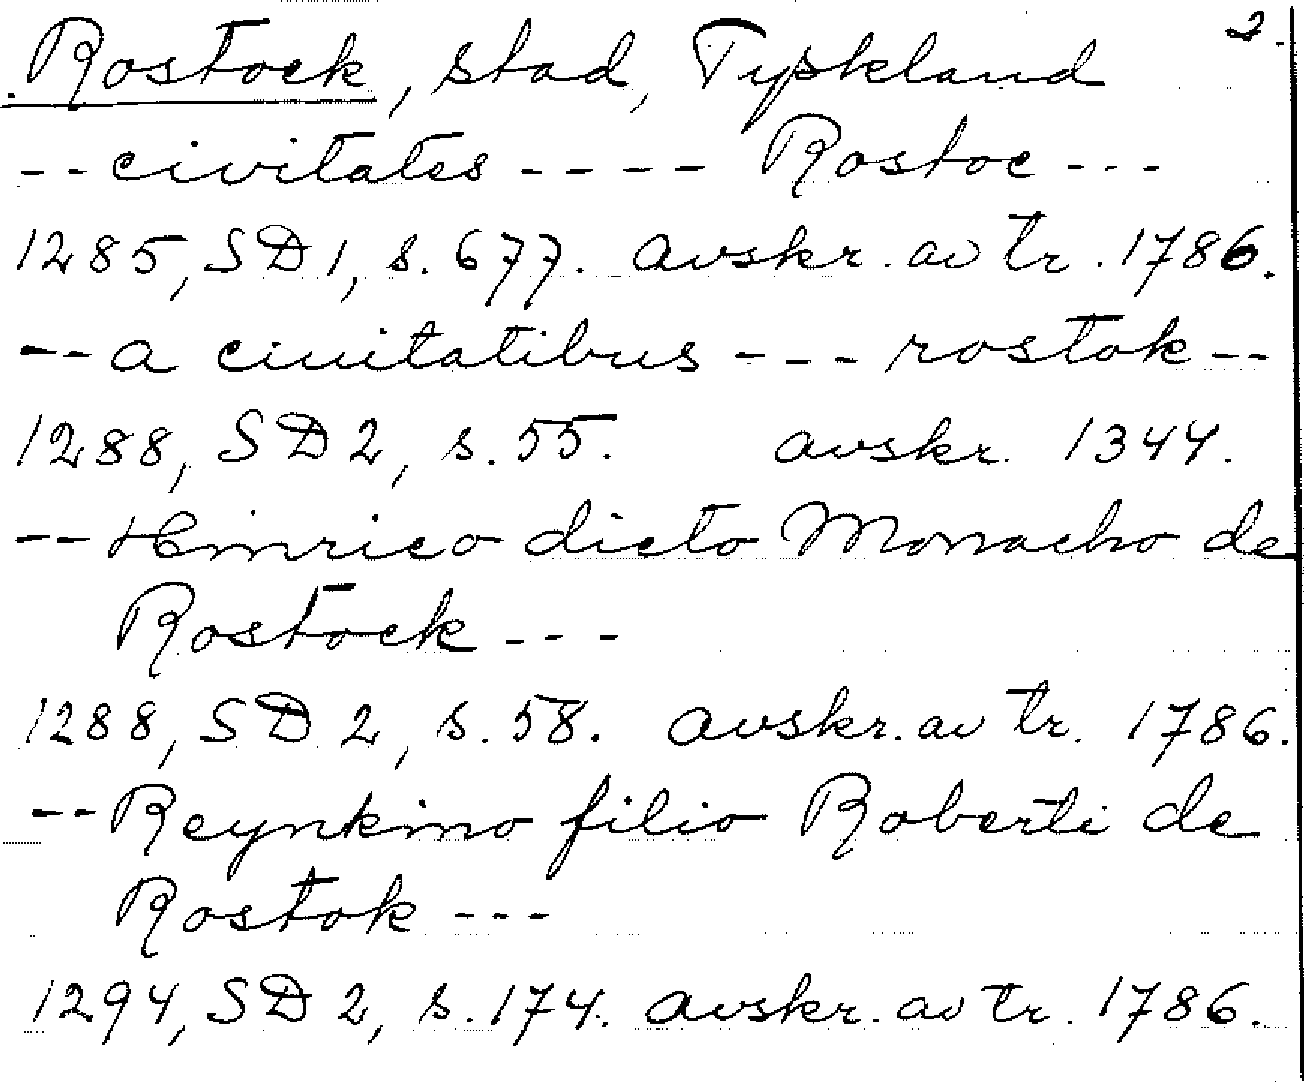 2.
Rostock, stad, Tyskland
-- civitates ---- Rostoc ---
1285, SD 1, s. 677. avskr. av tr. 1786.
-- a ciuitatibus --- rostok --
1288, SD 2, s. 55. avskr. 1344.
-- Hinrico dicto Monacho de
Rostock ---
1288, SD 2, s. 58. avskr. av tr. 1786.
-- Reynkino filio Roberti de
Rostok ---
1294, SD 2, s. 174. avskr. av tr. 1786.